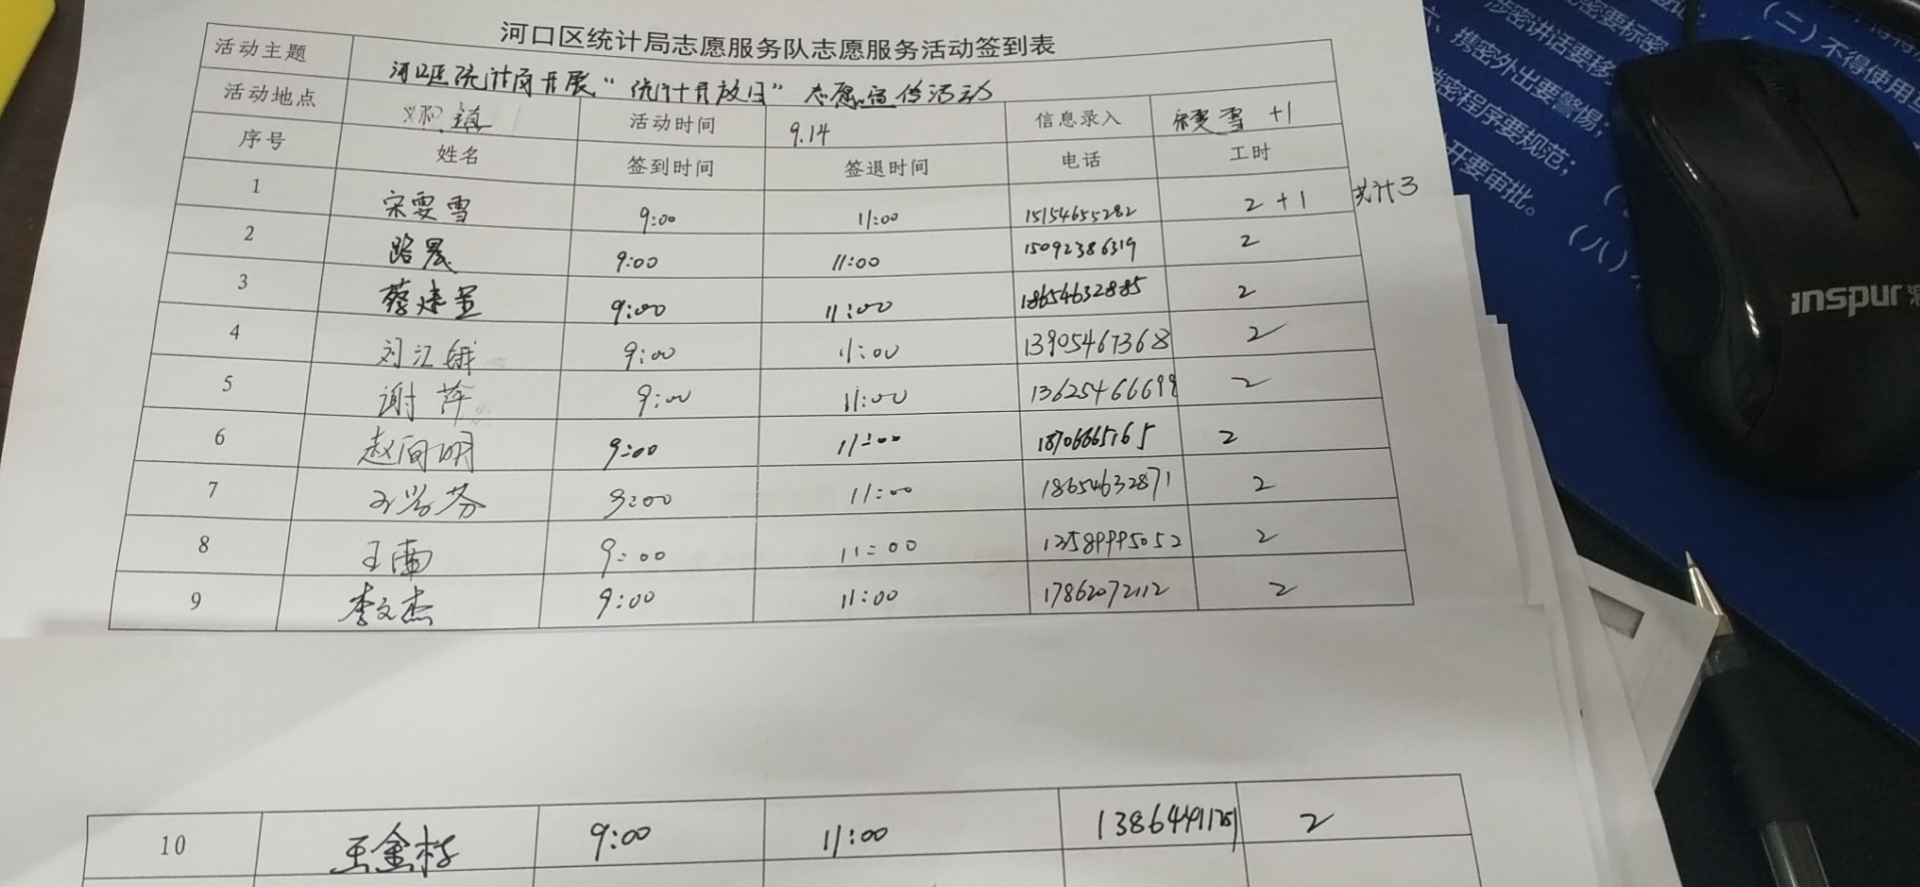 河口区统计局志愿服务队志愿服务活动签到表
活动主题 河口区统计局开展“统计开放日”志愿宣传活动
活动地点 义和镇 活动时间 9.14 信息录入 宋雯雪 +1
序号 姓名 签到时间 签退时间 电话 工时
1 宋雯雪 9:00 11:00 15154655282 2+1 共计3
2 路晨 9:00 11:00 15092386319 2
3 9:00 11:00 18654632885 2
4 刘江 9:00 11:00 13905467368 2
5 谢萍 9:00 11:00 2
6 赵向明 9:00 11:00 18706665165 2
7 9:00 11:00 18654632871 2
8 王雷 9:00 11:00 2
9 李文杰 9:00 11:00 17862072112 2
10 王金 9:00 11:00 2
inspur
涉密讲话要移
六、携密外出要警惕；
密程序要规范；
开要审批。
（二）不得使用
（八）